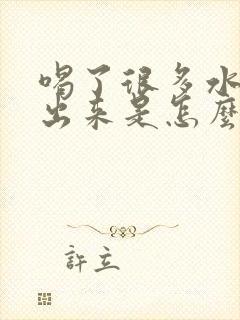 喝了很多水
出来是怎麽
許立